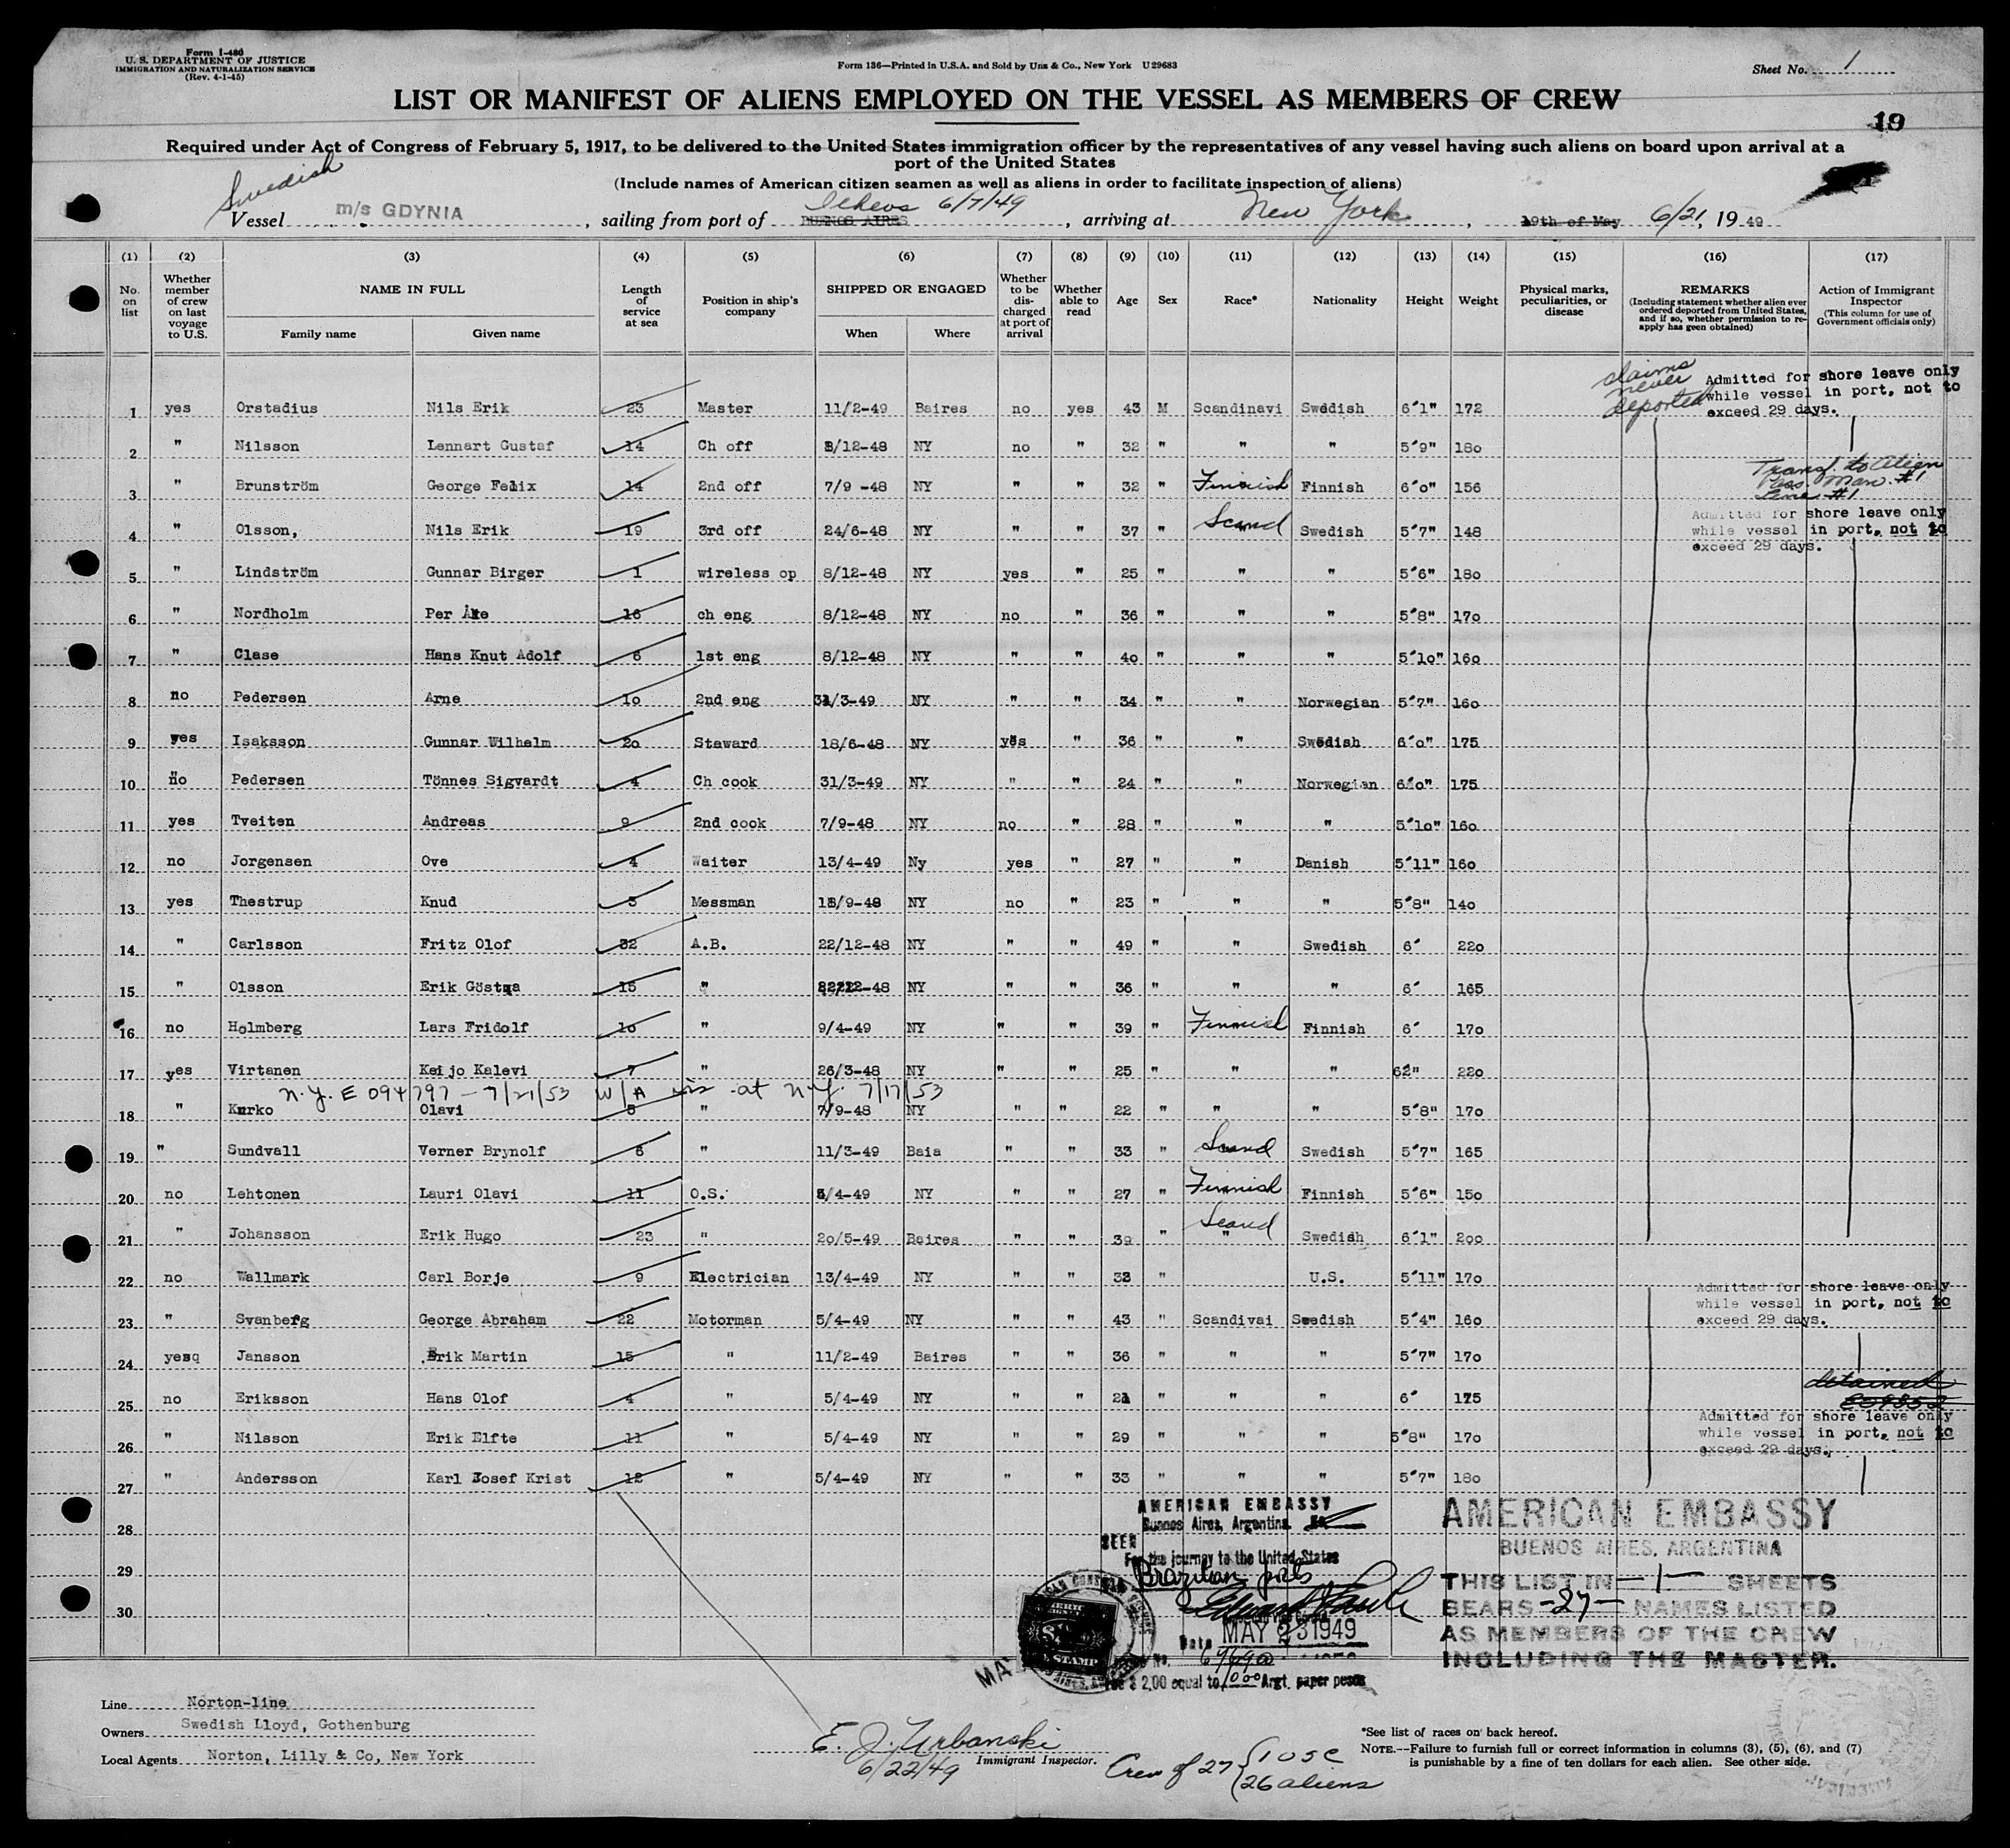 Form I-480
U. S. DEPARTMENT OF JUSTICE
IMMIGRATION AND NATURALIZATION SERVICE
(Rev. 4-1-45)
Form 136—Printed in U.S.A. and Sold by Unz & Co., New York U 29683
Sheet No. 1
LIST OR MANIFEST OF ALIENS EMPLOYED ON THE VESSEL AS MEMBERS OF CREW
19
Required under Act of Congress of February 5, 1917, to be delivered to the United States immigration officer by the representatives of any vessel having such aliens on board upon arrival at a
port of the United States
(Include names of American citizen seamen as well as aliens in order to facilitate inspection of aliens)
Swedish
Vessel m/s GDYNIA, sailing from port of BUENOS AIRES Ilheos 6/7/49, arriving at New York, 19th of May 6/21, 19 49
(1) (2) (3) (4) (5) (6) (7) (8) (9) (10) (11) (12) (13) (14) (15) (16) (17)
No. on list
Whether member of crew on last voyage to U.S.
NAME IN FULL
Family name
Given name
Length of service at sea
Position in ship's company
SHIPPED OR ENGAGED
When
Where
Whether to be discharged at port of arrival
Whether able to read
Age
Sex
Race*
Nationality
Height
Weight
Physical marks, peculiarities, or disease
REMARKS
(Including statement whether alien ever ordered deported from United States, and if so, whether permission to re-apply has geen obtained)
Action of Immigrant Inspector
(This column for use of Government officials only)
claims never deported
Admitted for shore leave only
while vessel in port, not to
exceed 29 days.
1 yes Orstadius Nils Erik 23 Master 11/2-49 Baires no yes 43 M Scandinavi Swedish 6'1" 172
2 " Nilsson Lennart Gustaf 14 Ch off 8/12-48 NY no " 32 " " " 5'9" 180
3 " Brunström George Felix 14 2nd off 7/9 -48 NY " " 32 " Finnish Finnish 6'0" 156
Transf. to Alien
Pass. Man. #1
Line #1
4 " Olsson, Nils Erik 19 3rd off 24/6-48 NY " " 37 " Scand Swedish 5'7" 148
Admitted for shore leave only
while vessel in port, not to
exceed 29 days.
5 " Lindström Gunnar Birger 1 wireless op 8/12-48 NY yes " 25 " " " 5'6" 180
6 " Nordholm Per Åke 16 ch eng 8/12-48 NY no " 36 " " " 5'8" 170
7 " Clase Hans Knut Adolf 6 1st eng 8/12-48 NY " " 40 " " " 5'10" 160
8 no Pedersen Arne 10 2nd eng 31/3-49 NY " " 34 " " Norwegian 5'7" 160
9 yes Isaksson Gunnar Wilhelm 20 Steward 18/6-48 NY yes " 36 " " Swedish 6'0" 175
10 no Pedersen Tönnes Sigvardt 4 Ch cook 31/3-49 NY " " 24 " " Norwegian 6'0" 175
11 yes Tveiten Andreas 9 2nd cook 7/9-48 NY no " 28 " " " 5'10" 160
12 no Jorgensen Ove 4 Waiter 13/4-49 Ny yes " 27 " " Danish 5'11" 160
13 yes Thestrup Knud 3 Messman 18/9-48 NY no " 23 " " " 5'8" 140
14 " Carlsson Fritz Olof 32 A.B. 22/12-48 NY " " 49 " " Swedish 6' 220
15 " Olsson Erik Gösta 15 " 22/12-48 NY " " 36 " " " 6' 165
16 no Holmberg Lars Fridolf 10 " 9/4-49 NY " " 39 " Finnish Finnish 6' 170
17 yes Virtanen Keijo Kalevi 7 " 26/3-48 NY " " 25 " " " 62" 220
N.Y. E 094797 - 7/21/53 W/A at N.Y. 7/17/53
18 " Kurko Olavi 5 " 7/9-48 NY " " 22 " " " 5'8" 170
19 " Sundvall Verner Brynolf 6 " 11/3-49 Baia " " 33 " Scand Swedish 5'7" 165
20 no Lehtonen Lauri Olavi 11 O.S. /4-49 NY " " 27 " Finnish Finnish 5'6" 150
21 " Johansson Erik Hugo 23 " 20/5-49 Baires " " 39 " Scand " Swedish 6'1" 200
22 no Wallmark Carl Borje 9 Electrician 13/4-49 NY " " 38 " U.S. 5'11" 170
Admitted for shore leave only
while vessel in port, not to
exceed 29 days.
23 " Svanberg George Abraham 22 Motorman 5/4-49 NY " " 43 " Scandivai Swedish 5'4" 160
24 yesq Jansson Erik Martin 15 " 11/2-49 Baires " " 36 " " " 5'7" 170
25 no Eriksson Hans Olof 4 " 5/4-49 NY " " 21 " " " 6' 175
detained
Admitted for shore leave only
while vessel in port, not to
exceed 29 days.
26 " Nilsson Erik Elfte 11 " 5/4-49 NY " " 29 " " " 5'8" 170
27 " Andersson Karl Josef Krist 12 " 5/4-49 NY " " 33 " " " 5'7" 180
28
29
30
AMERICAN EMBASSY
Buenos Aires, Argentina
SEEN
For the journey to the United States
Brazilian ports
Date MAY 23 1949
Fee $ 2.00 equal to Argt. paper pesos
STAMP
AMERICAN EMBASSY
BUENOS AIRES, ARGENTINA
THIS LIST IN -1- SHEETS
BEARS -27- NAMES LISTED
AS MEMBERS OF THE CREW
INCLUDING THE MASTER.
Line Norton-line
Owners Swedish Lloyd, Gothenburg
Local Agents Norton, Lilly & Co, New York
E. J. Urbanski
6/22/49 Immigrant Inspector.
Crew of 27 { 1 USC
26 aliens
*See list of races on back hereof.
NOTE.—Failure to furnish full or correct information in columns (3), (5), (6), and (7)
is punishable by a fine of ten dollars for each alien. See other side.